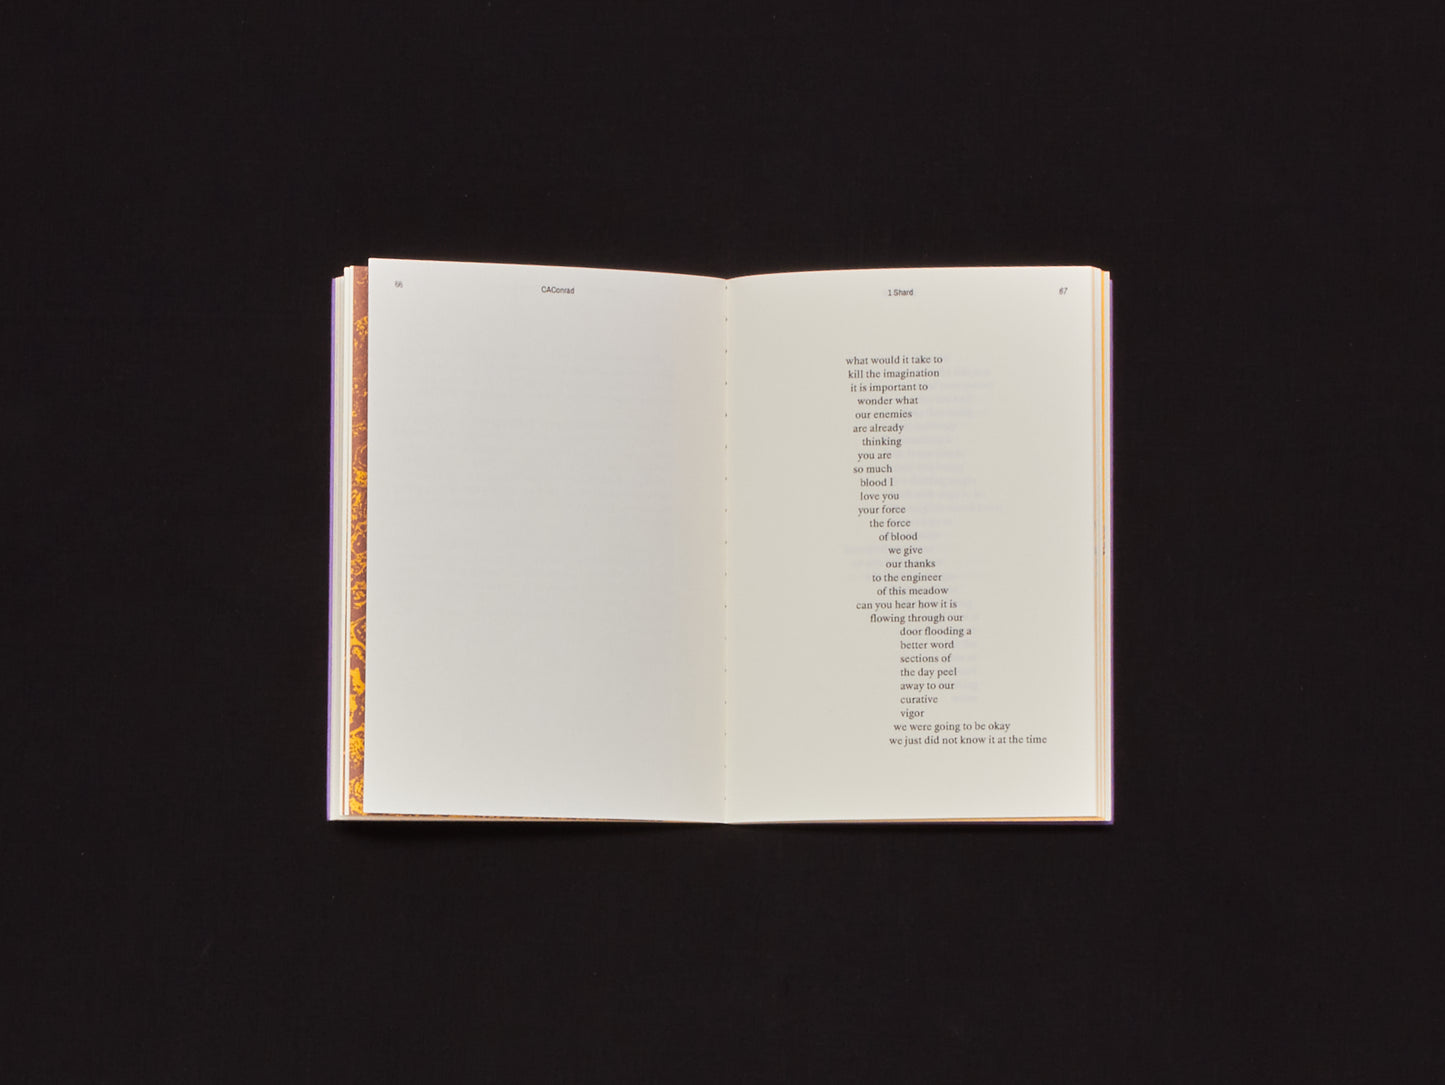 66
CAConrad
1 Shard
67
what would it take to
kill the imagination
it is important to
wonder what
our enemies
are already
thinking
you are
so much
blood I
love you
your force
the force
of blood
we give
our thanks
to the engineer
of this meadow
can you hear how it is
flowing through our
door flooding a
better word
sections of
the day peel
away to our
curative
vigor
we were going to be okay
we just did not know it at the time